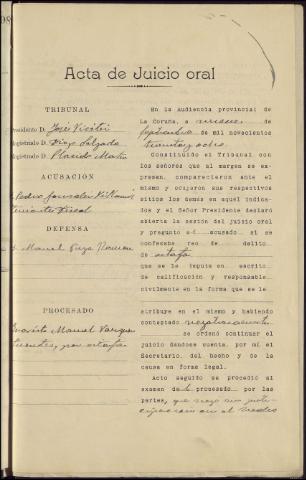 Acta de Juicio oral
TRIBUNAL
Presidente D. José Vicitri
Magistrado D. Diego Salgado
Magistrado D. Plácido Martín
ACUSACIÓN
D. Pedro González
Teniente Fiscal
DEFENSA
D. Manuel
PROCESADO
Manuel Vázquez
por estafa
En la Audiencia provincial de
La Coruña, a
Septiembre de mil novecientos
treinta y ocho.
Constituído el Tribunal con
los señores que al margen se ex-
presan, comparecieron ante el
mismo y ocuparon sus respectivos
sitios los demás en aquél indica-
dos y el Señor Presidente declaró
abierta la sesión del juicio oral
y preguntó al acusado si se
confesaba reo de delito
de estafa
que se le imputa en escrito
de calificación y responsable
civilmente en la forma que se le
atribuye en el mismo y habiendo
contestado negativamente
se ordenó continuar el
juicio dándose cuenta, por mi el
Secretario, del hecho y de la
causa en forma legal.
Acto seguido se procedió al
examen del procesado por las
partes, que negó su parti-
cipación en el hecho